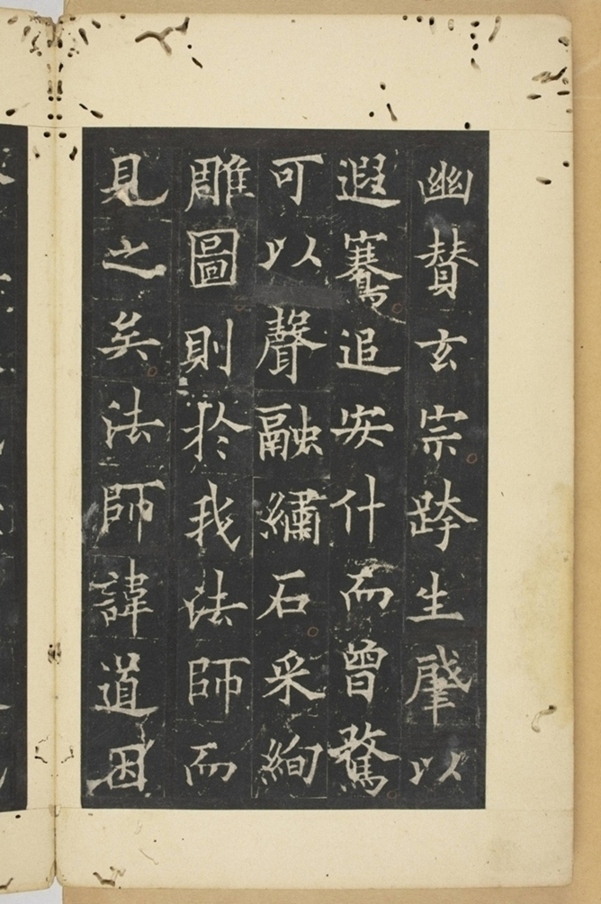 幽贊玄宗跨生肇以
遐騫追安什而曾騖
可以聲融繡石采絢
雕圖則於我法師而
見之矣法師諱道因